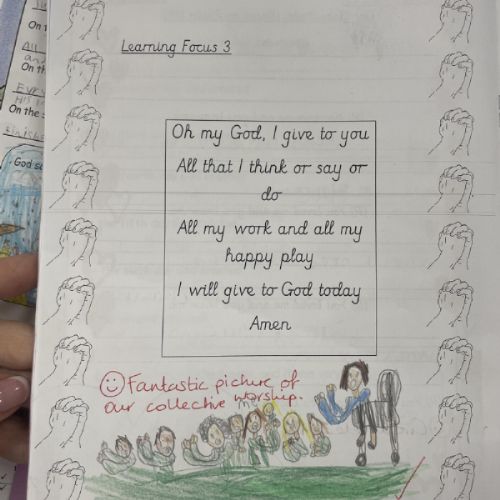 On t
All
On th
Every
On the s
God s
Learning Focus 3
Oh my God, I give to you
All that I think or say or
do
All my work and all my
happy play
I will give to God today
Amen
Fantastic picture of
our collective worship.
me